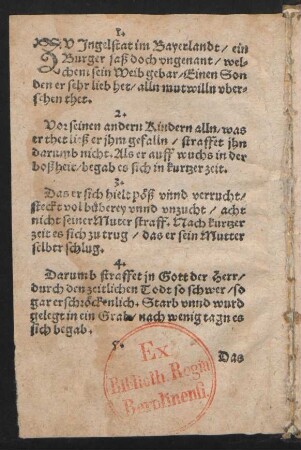 1.
ZU Ingelstat im Bayerlandt / ein
Burger saß doch vngenant / wel-
chem sein Weib gebar / Einen Son
den er sehr lieb het / alln mutwilln vber-
sehen thet.
2.
Vor seinen andern Kindern alln / was
er thet ließ er jhm gefalln / straffet jhn
darumb nicht. Als er auff wuchs in der
boßheit / begab es sich in kurtzer zeit.
3.
Das er sich hielt pöß vnnd verrucht /
steckt vol büberey vnnd vnzucht / acht
nicht seiner Muter straff. Nach kurtzer
zeit es sich zu trug / das er sein Mutter
selber schlug.
4.
Darumb straffet jn Gott der Herr /
durch den zeitlichen Todt so schwer / so
gar erschröckenlich. Starb vnnd wurd
gelegt in ein Grab / nach wenig tagn es
sich begab.
5.
Das
Ex
Biblioth. Regia
Berolinensi.